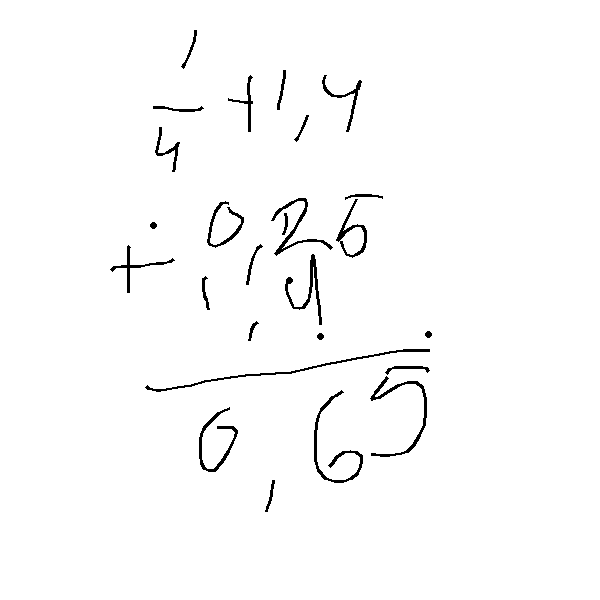 1/4 + 1,4
+ 0,25
1,4
0,65